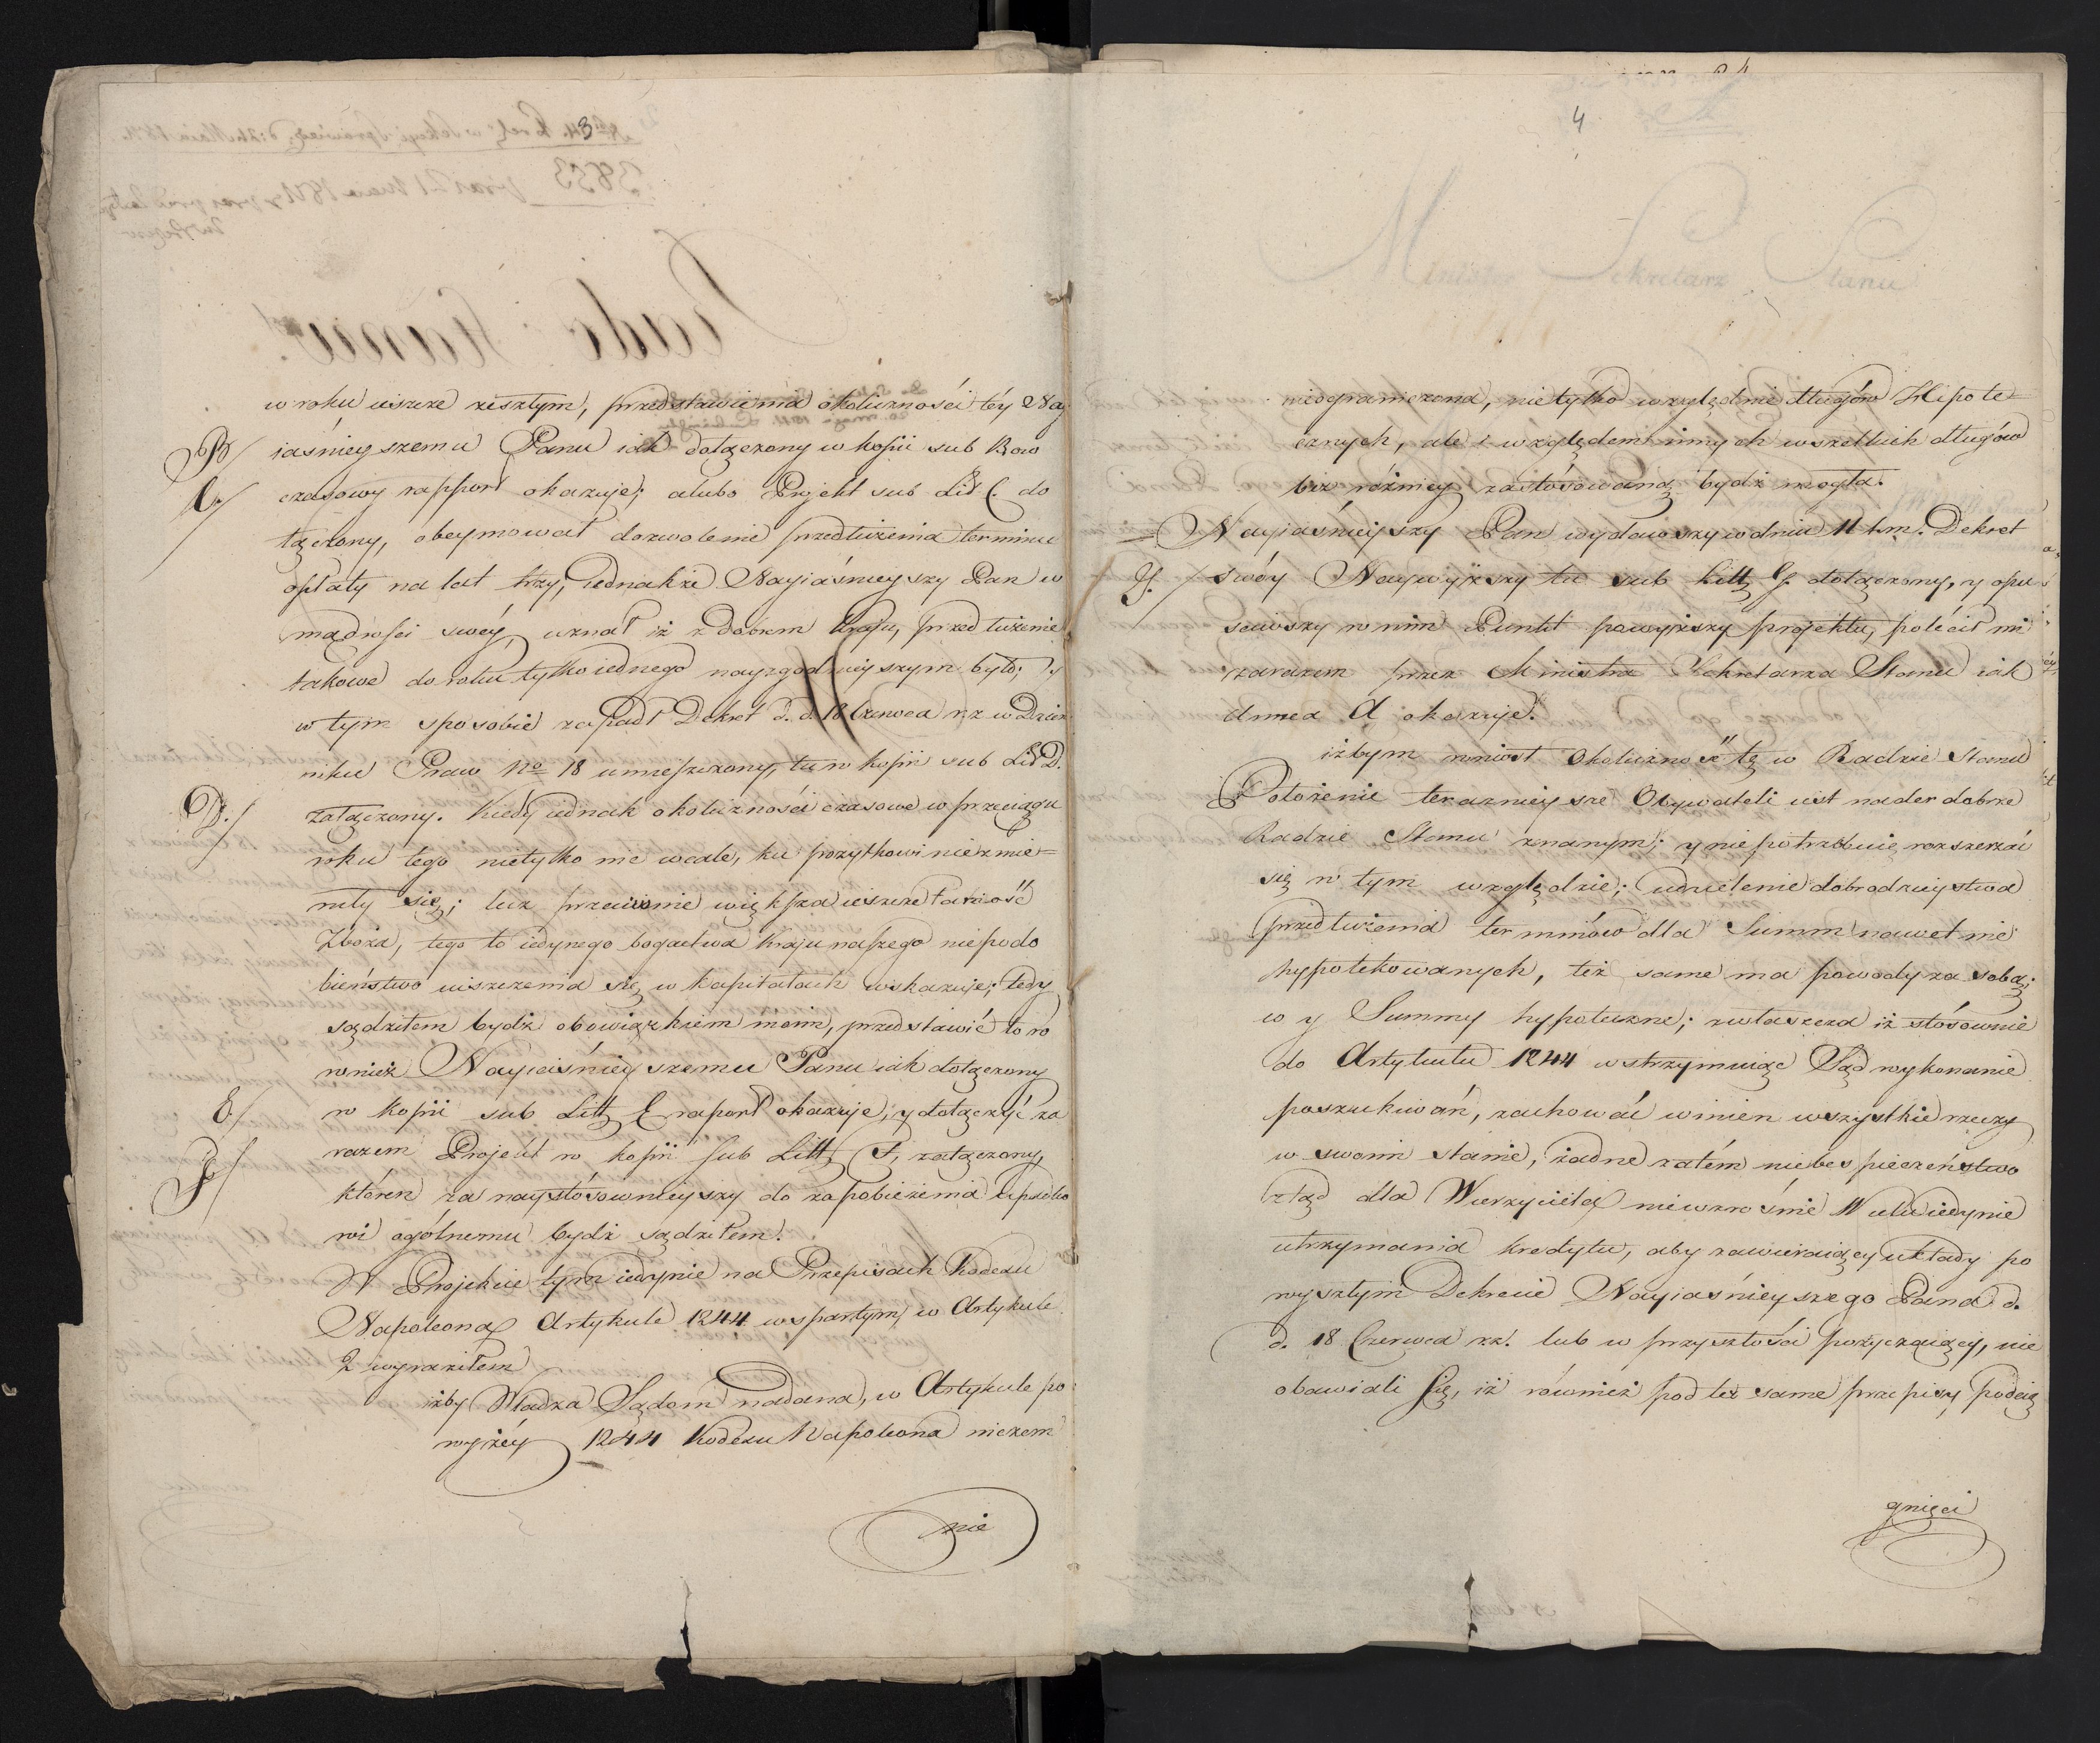 3
w roku ieszcze zeszłym, przedstawienia okoliczności téy Nay
B/ iaśnieyszemu Panu iak dołączony w kopii sub B ow
C./ czasowy rapport okazuje; alubo Projekt sub Lit C. do
łączony, obeymował dozwolenie przedłużenia terminu
opłaty na lat trzy, iednakże Nayiaśnieyszy Pan w
mądrości swéy uznał iż z dobrem Kraju, przedłużenie
takowe do roku tylko iednego nayzgodnieyszym było; y
w tym sposobie zapadł Dekret d. d. 18 Czerwca r. z w Dzien
niku Praw No 18 umieszczony, tu w kopii sub Lit D.
D./ załączony. Kiedy iednak okoliczności czasowe w przeciągu
roku tego nietylko nie wcale, ku pożytkowi niezmie=
niły się; lecz przeciwnie większa ieszcze taniość
Zboża, tego to iedynego bogactwa Kraju naszego niepodo
bieństwo uiszczenia się w kapitałach wskazuje; tedy
sądziłem bydź obowiązkiem moim, przedstawić to ró
wnież Nayiaśnieyszemu Panu iak dołączony
E/ w kopii sub Litt E raport okazuje, y dołączyć za
F/ razem Projekt w kopii sub Litt F, załączony,
któren za naystósownieyszy do zapobieżenia upadko
wi ogólnemu bydź sądziłem.
W Projekcie tym iedynie na Przepisach Kodexu
Napoleona Artykule 1244 wspartym, w Artykule
2 wyraziłem
iżby Władza Sądom nadana, w Artykule po
wyżéy 1244 Kodexu Napoleona niczem
nie
4
nieograniczona, nietylko względnie długów Hipote=
cznych, ale i względem innych wszelkich długów
bez różnicy zastósowaną bydź mogła.
Nayiaśnieyszy Pan wydawszy w dniu 11 b.m. Dekret
G./ swóy Naywyższy tu sub Litt G dołączony, y opu
ściwszy w nim Punkt powyższy projektu, polécił mi
zarazem przez Ministra Sekretarza Stanu iak
annexa A okazuje.
iżbym wniósł okoliczność tę w Radzie Stanu
Położenie teraznieysze Obywateli iest nader dobrze
Radzie Stanu znanym; y niepotrzebuię rozszerzać
się w tym względzie; udzielenie dobrodzieystwa
przedłużenia terminów dla Summ nawet nie
hypotekowanych, też same ma powody za sobą;
co y Summy hypoteczne; zwłaszcza iż stósownie
do Artykułu 1244 wstrzymuiąc Sąd wykonanie
poszukiwań, zachować winien wszystkie rzeczy
w swoim stanie, żadne zatém niebespieczeństwo
ztąd dla Wierzyciela niewzrośnie W celu iedynie
utrzymania kredytu, aby zawieraiący układy po
wyszłym Dekrecie Nayiaśnieyszego Pana d.
d. 18 Czerwca r.z. lub w przyszłości pożyczaiący, nie
obawiali się, iż również pod też same przepisy podcią
gnięci